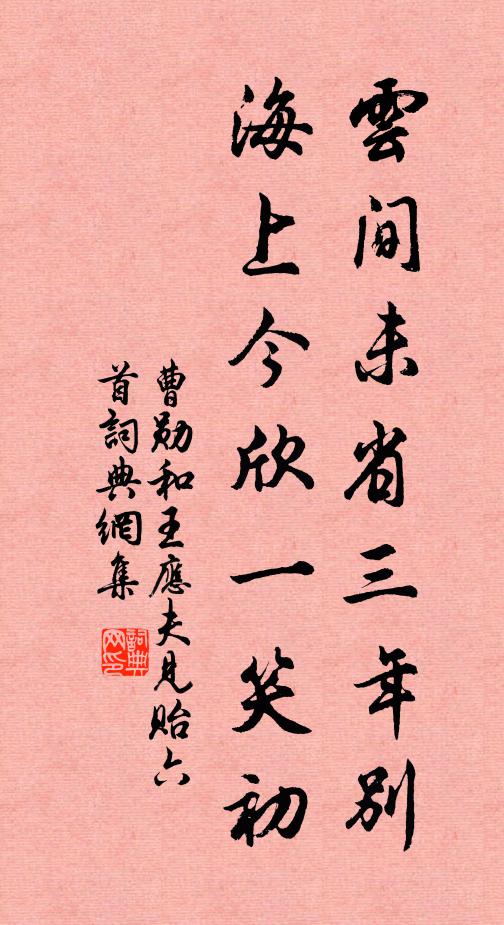 雲間未省三年別
海上今欣一笑初
曹勛和王應夫見貽六
首詞典網集
詞典
网印